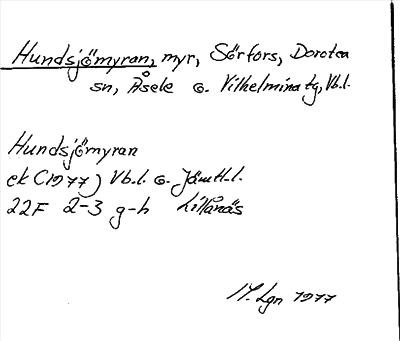 Hundsjömyran, myr, Sörfors, Dorotea
sn, Åsele o. Vilhelmina tg, Vb.l.
Hundsjömyran
ek (1977) Vb.l. o. Jämtl.l.
22F 2-3 g-h Lillånäs
M. Lgn 1977